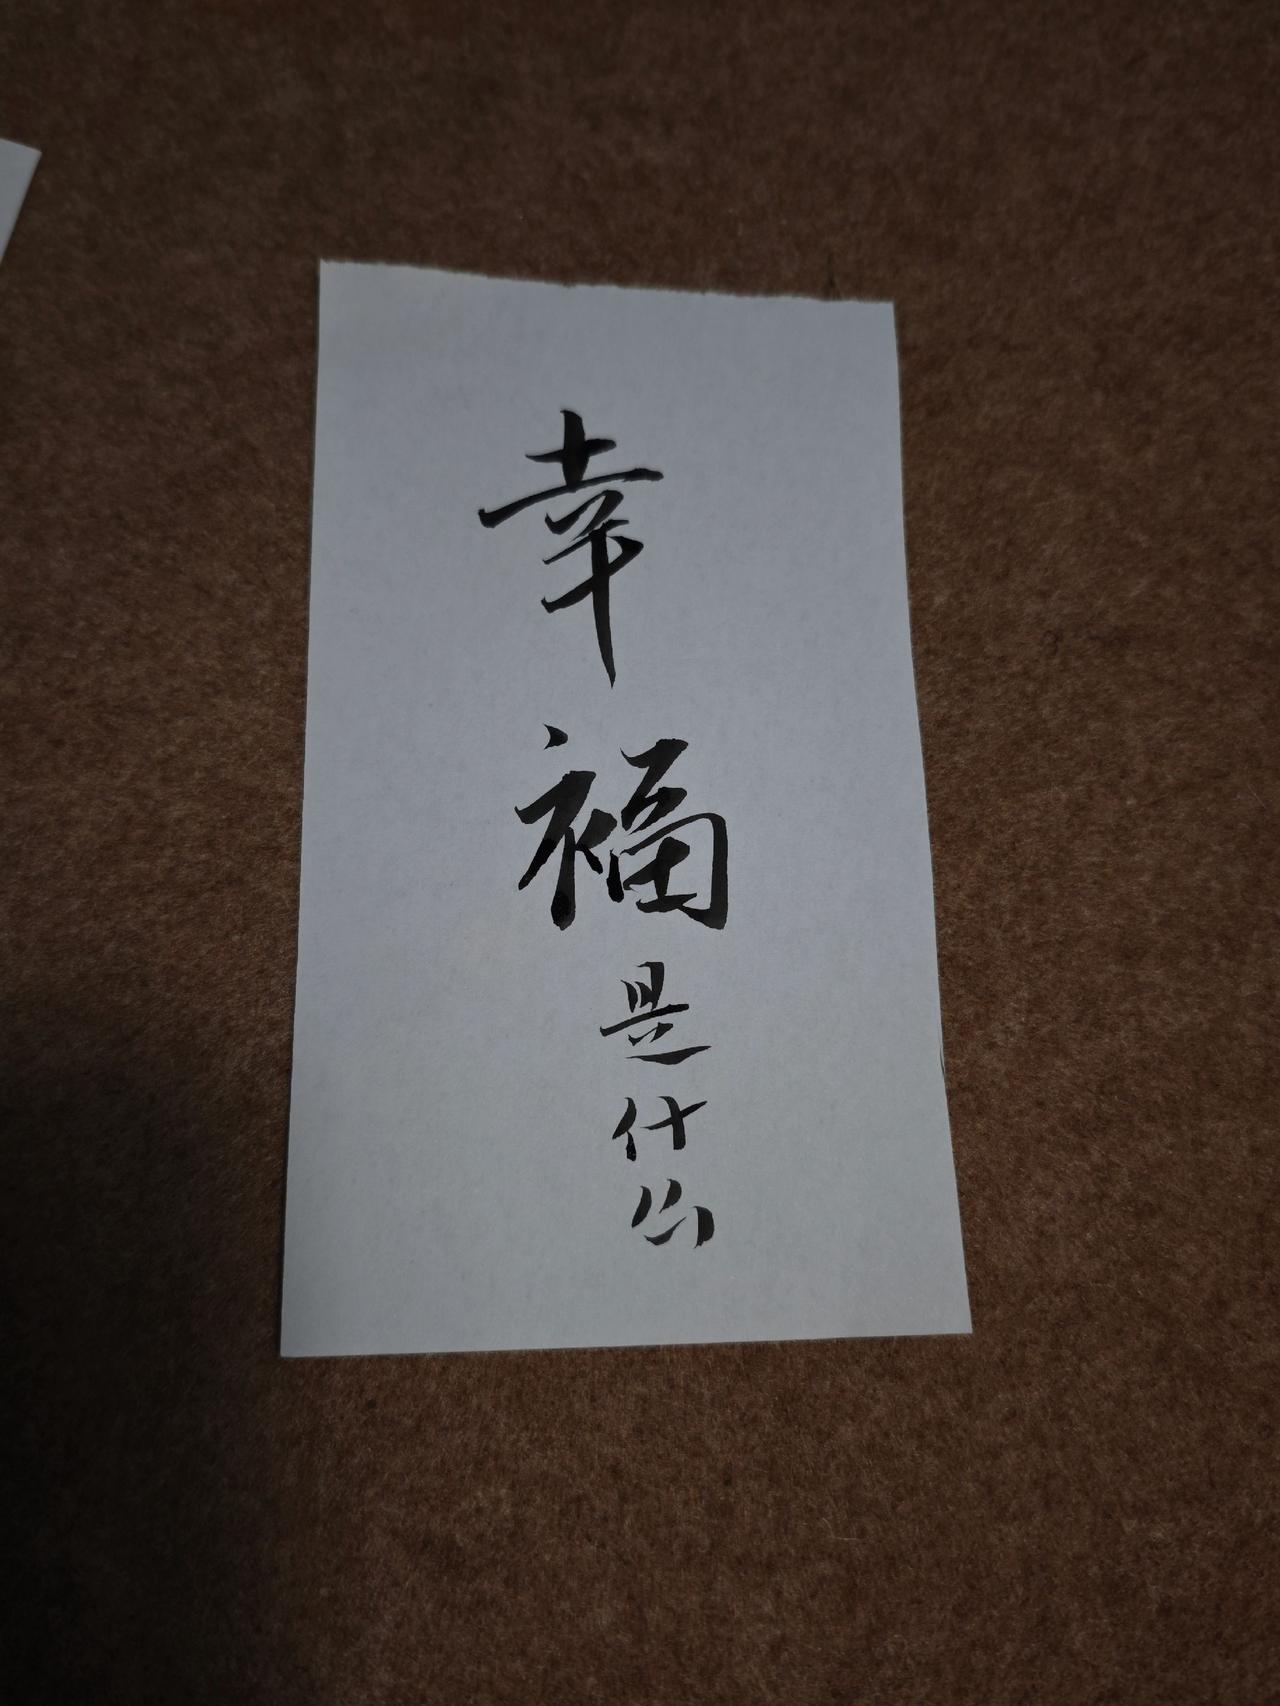 幸福是什么